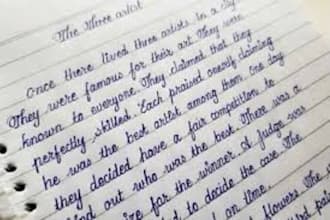 The Three artist
Once there lived three artists in a city.
They were famous for their art. They were
known to everyone. They claimed that they
perfectly skilled. Each praised oneself claiming
he was the best artist among them. One day
they decided to have a fair competition to
find out who was the best. There was a
for the winner. A judge was
to decide the case. The
on time.
flowers. The